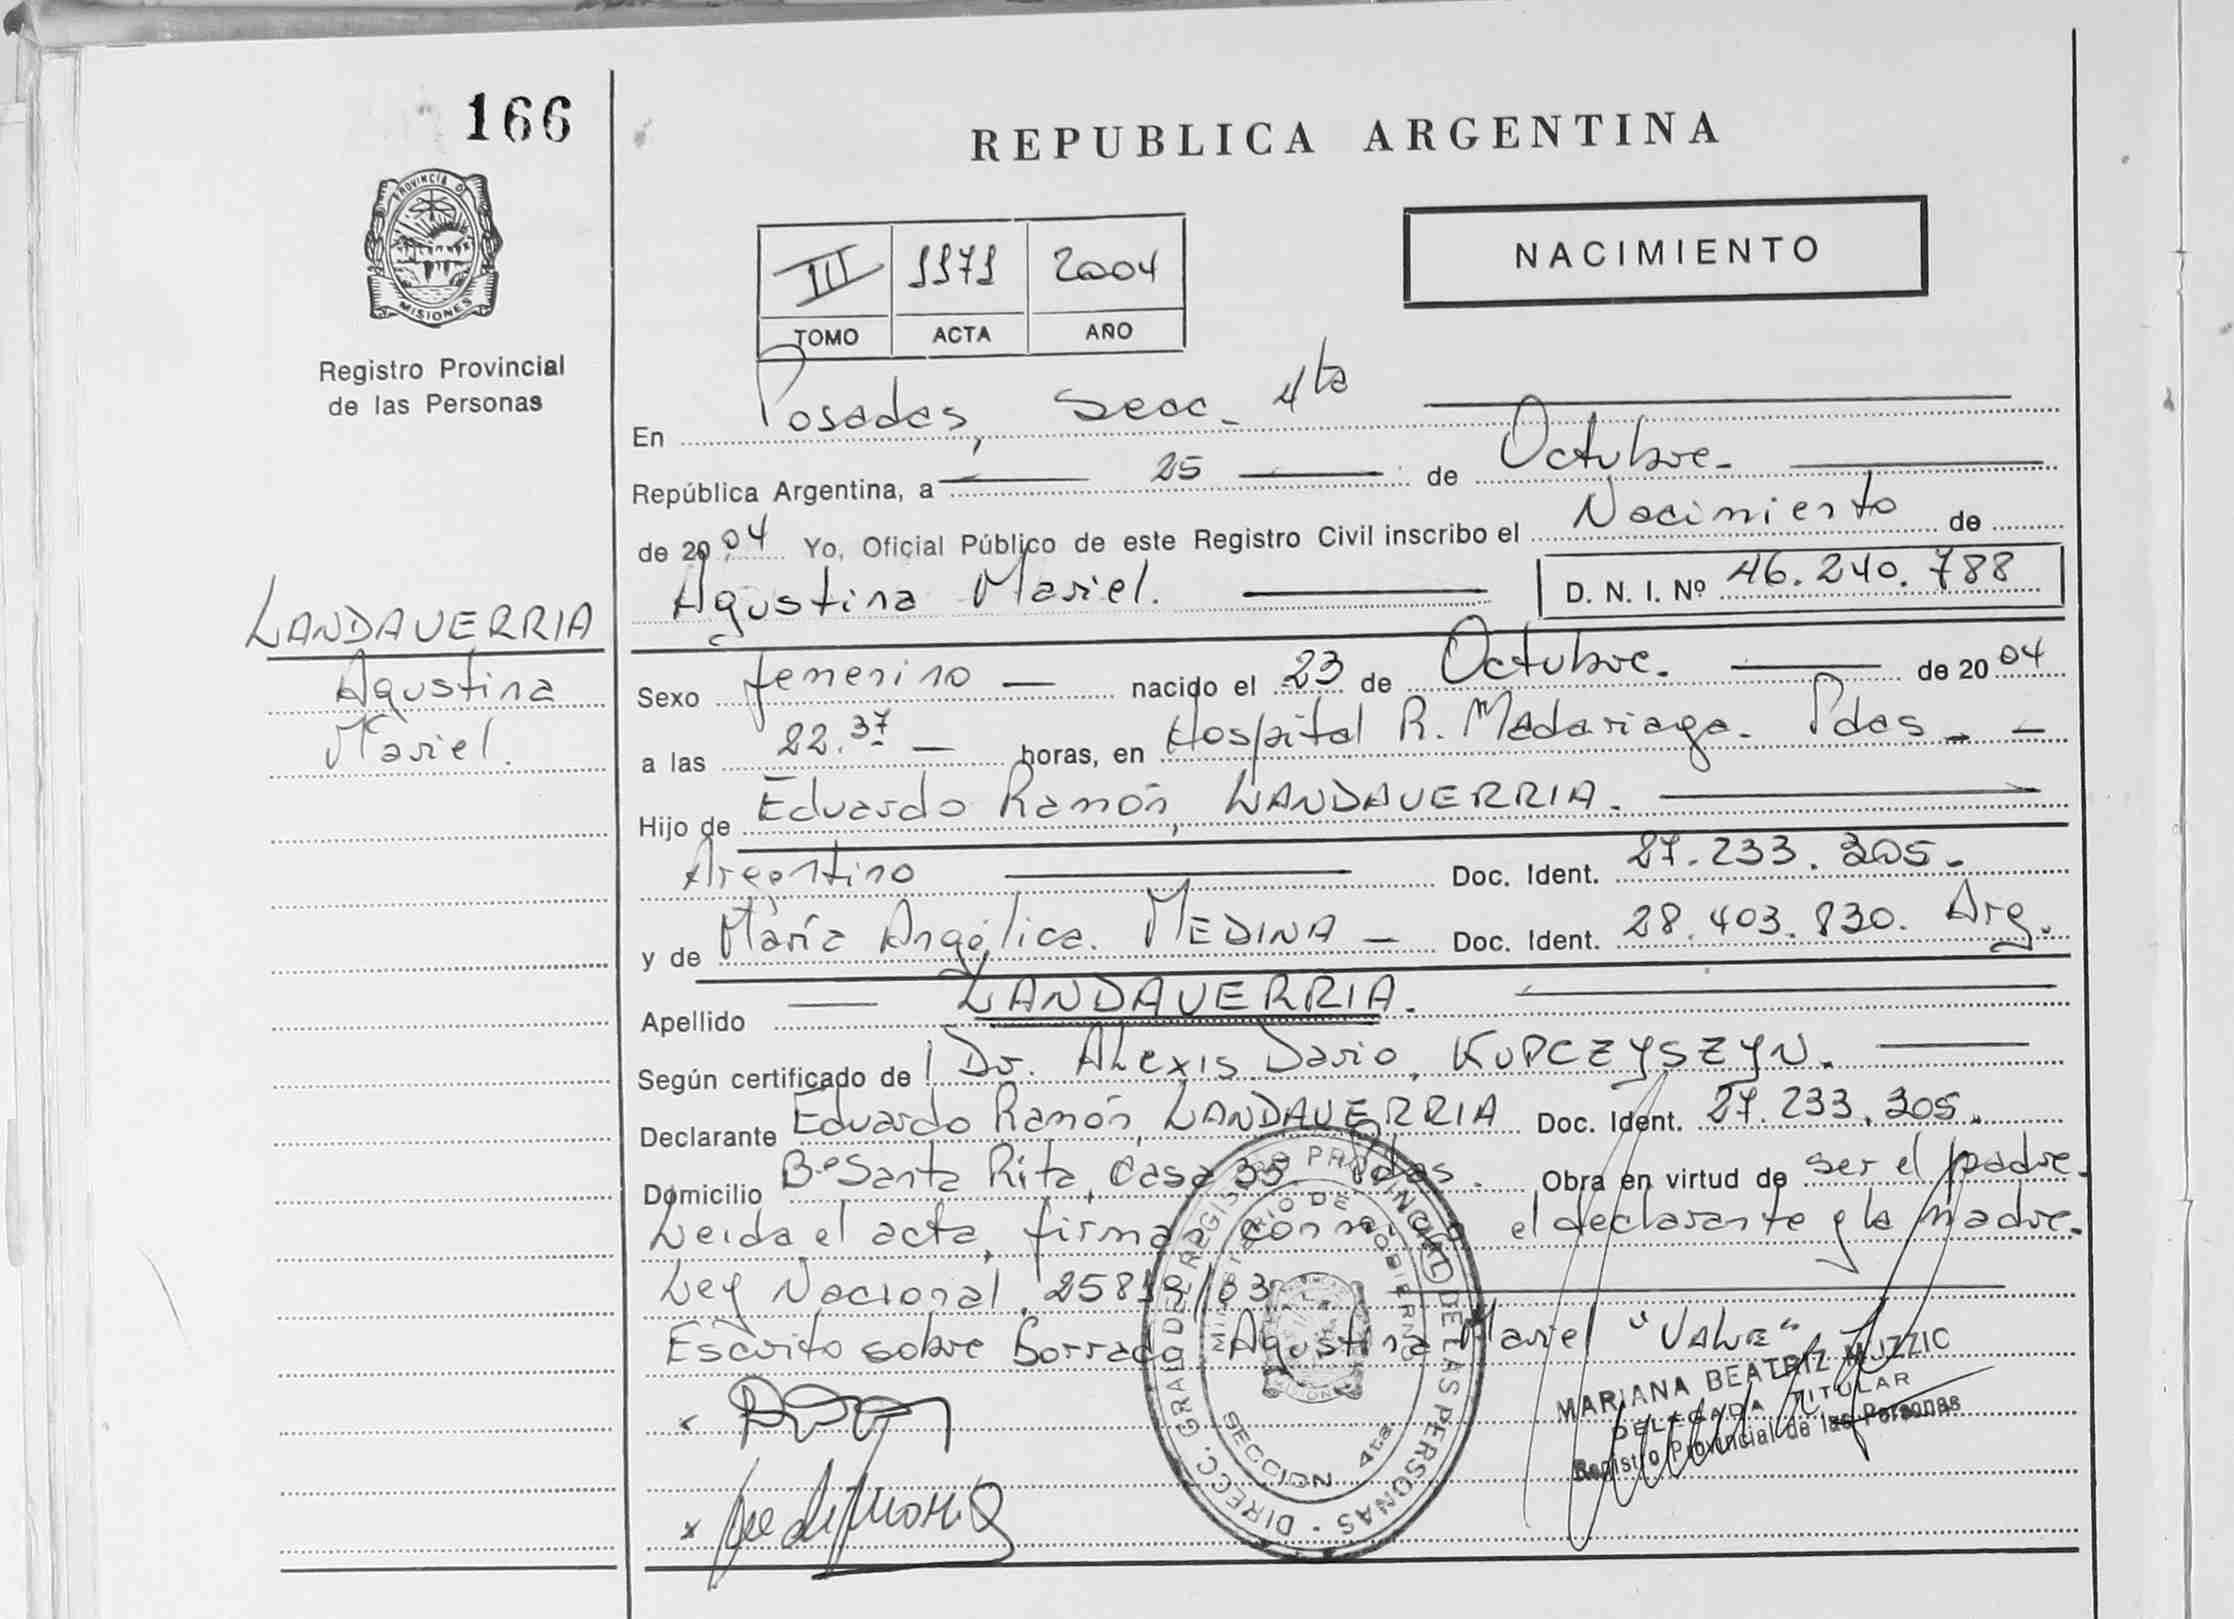 166
PROVINCIA D
MISIONES
Registro Provincial
de las Personas
LANDAVERRIA
Agustina
Mariel.
REPUBLICA ARGENTINA
NACIMIENTO
III 1171 2004
TOMO ACTA AÑO
En Posadas, Secc. 4ta
República Argentina, a 25 de Octubre.
de 2004 Yo, Oficial Público de este Registro Civil inscribo el Nacimiento de
Agustina Mariel. D. N. I. Nº 46.240.788
Sexo femenino nacido el 23 de Octubre. de 2004
a las 22.37 horas, en Hospital R. Madariaga. Pdas
Hijo de Eduardo Ramón, LANDAVERRIA.
Argentino Doc. Ident. 27.233.305.
y de María Angélica. MEDINA Doc. Ident. 28.403.830. Arg.
Apellido LANDAVERRIA.
Según certificado de Dr. Alexis Dario, KUPCZYSZYN.
Declarante Eduardo Ramón, LANDAVERRIA Doc. Ident. 27.233.305.
Domicilio Bº Santa Rita, Casa 35 Pdas. Obra en virtud de ser el padre.
Leida el acta, firma conmigo el declarante y la madre.
Ley Nacional, 25819/03
Escrito sobre Borrado Agustina Mariel "VALE"
DIRECC. GRAL DEL REGISTRO PROVINCIAL DE LAS PERSONAS
MINISTERIO DE GOBIERNO
SECCION 4ta.
MARIANA BEATRIZ MUZZIC
DELEGADA TITULAR
Registro Provincial de las Personas